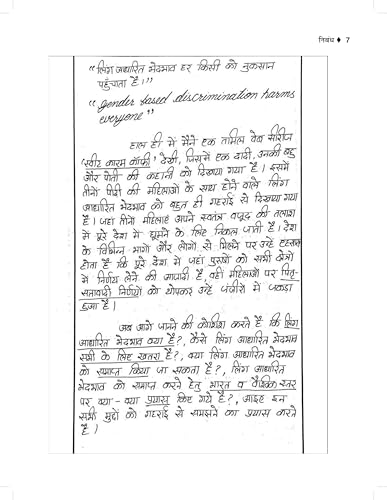 निबंध ♦ 7
“लिंग आधारित भेदभाव हर किसी को नुकसान
पहुँचाता है।”
“Gender based discrimination harms
everyone”
हाल ही में मैंने एक तमिल वेब सीरीज
‘स्वीट कारम कॉफी’ देखी, जिसमें एक दादी, उनकी बहु
और पोती की कहानी को दिखाया गया है। इसमें
तीनों पीढ़ी की महिलाओं के साथ होने वाले लिंग
आधारित भेदभाव को बहुत ही गहराई से दिखाया गया
है। जहां तीनों महिलाएं अपने स्वतंत्र वजूद की तलाश
में पूरे देश में घूमने के लिए निकल जाती है। देश
के विभिन्न भागों और लोगों से मिलने पर उन्हें एहसास
होता है कि पूरे देश में जहां पुरुषों को सभी क्षेत्रों
में निर्णय लेने की आजादी है, वहीं महिलाओं पर पितृ-
सत्तावादी निर्णयों को थोपकर उन्हें जंजीरों में जकड़ा
हुआ है।
अब आगे जानने की कोशिश करते है कि लिंग
आधारित भेदभाव क्या है?, कैसे लिंग आधारित भेदभाव
सभी के लिए खतरा है?, क्या लिंग आधारित भेदभाव
को समाप्त किया जा सकता है?, लिंग आधारित
भेदभाव को समाप्त करने हेतु भारत व वैश्विक स्तर
पर क्या-क्या प्रयास किए गये है?, आइए इन
सभी मुद्दों को गहराई से समझने का प्रयास करते
है।